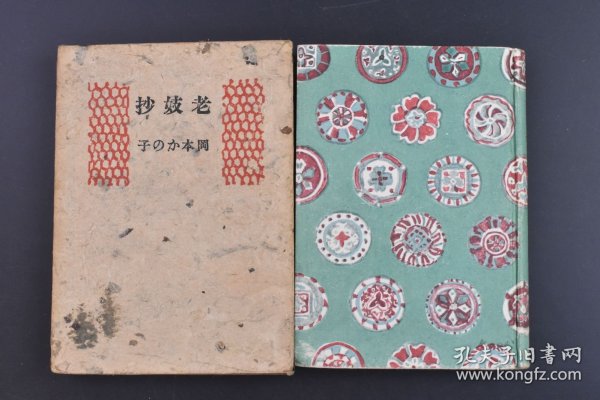 老妓抄
岡本かの子
孔夫子旧书网
www.kongfz.com